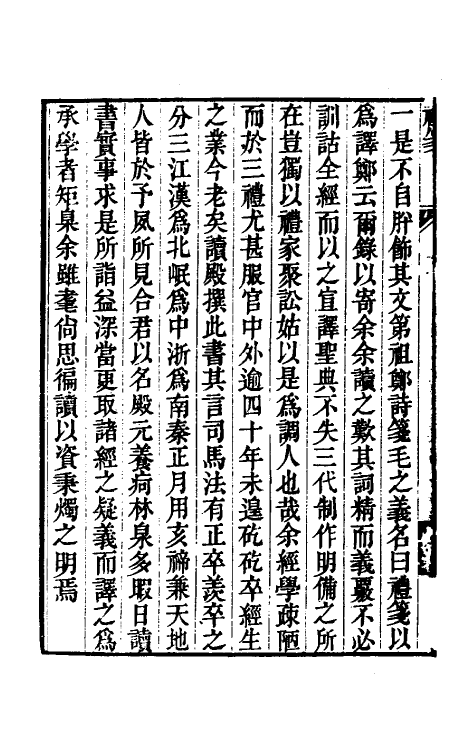 一是不自胖飾其文第祖鄭詩箋毛之義名曰禮箋以
爲譯鄭云爾錄以寄余余讀之歎其詞精而義覈不必
訓詁全經而以之宣譯聖典不失三代制作明備之所
在豈獨以禮家聚訟姑以是爲調人也哉余經學疎陋
而於三禮尤甚服官中外逾四十年未遑矻矻卒經生
之業今老矣讀殿撰此書其言司馬法有正卒羨卒之
分三江漢爲北岷爲中浙爲南秦正月用亥禘兼天地
人皆於予夙所見合君以名殿元養疴林泉多暇日讀
書實事求是所詣益深當更取諸經之疑義而譯之爲
承學者矩臬余雖耄尙思徧讀以資秉燭之明焉